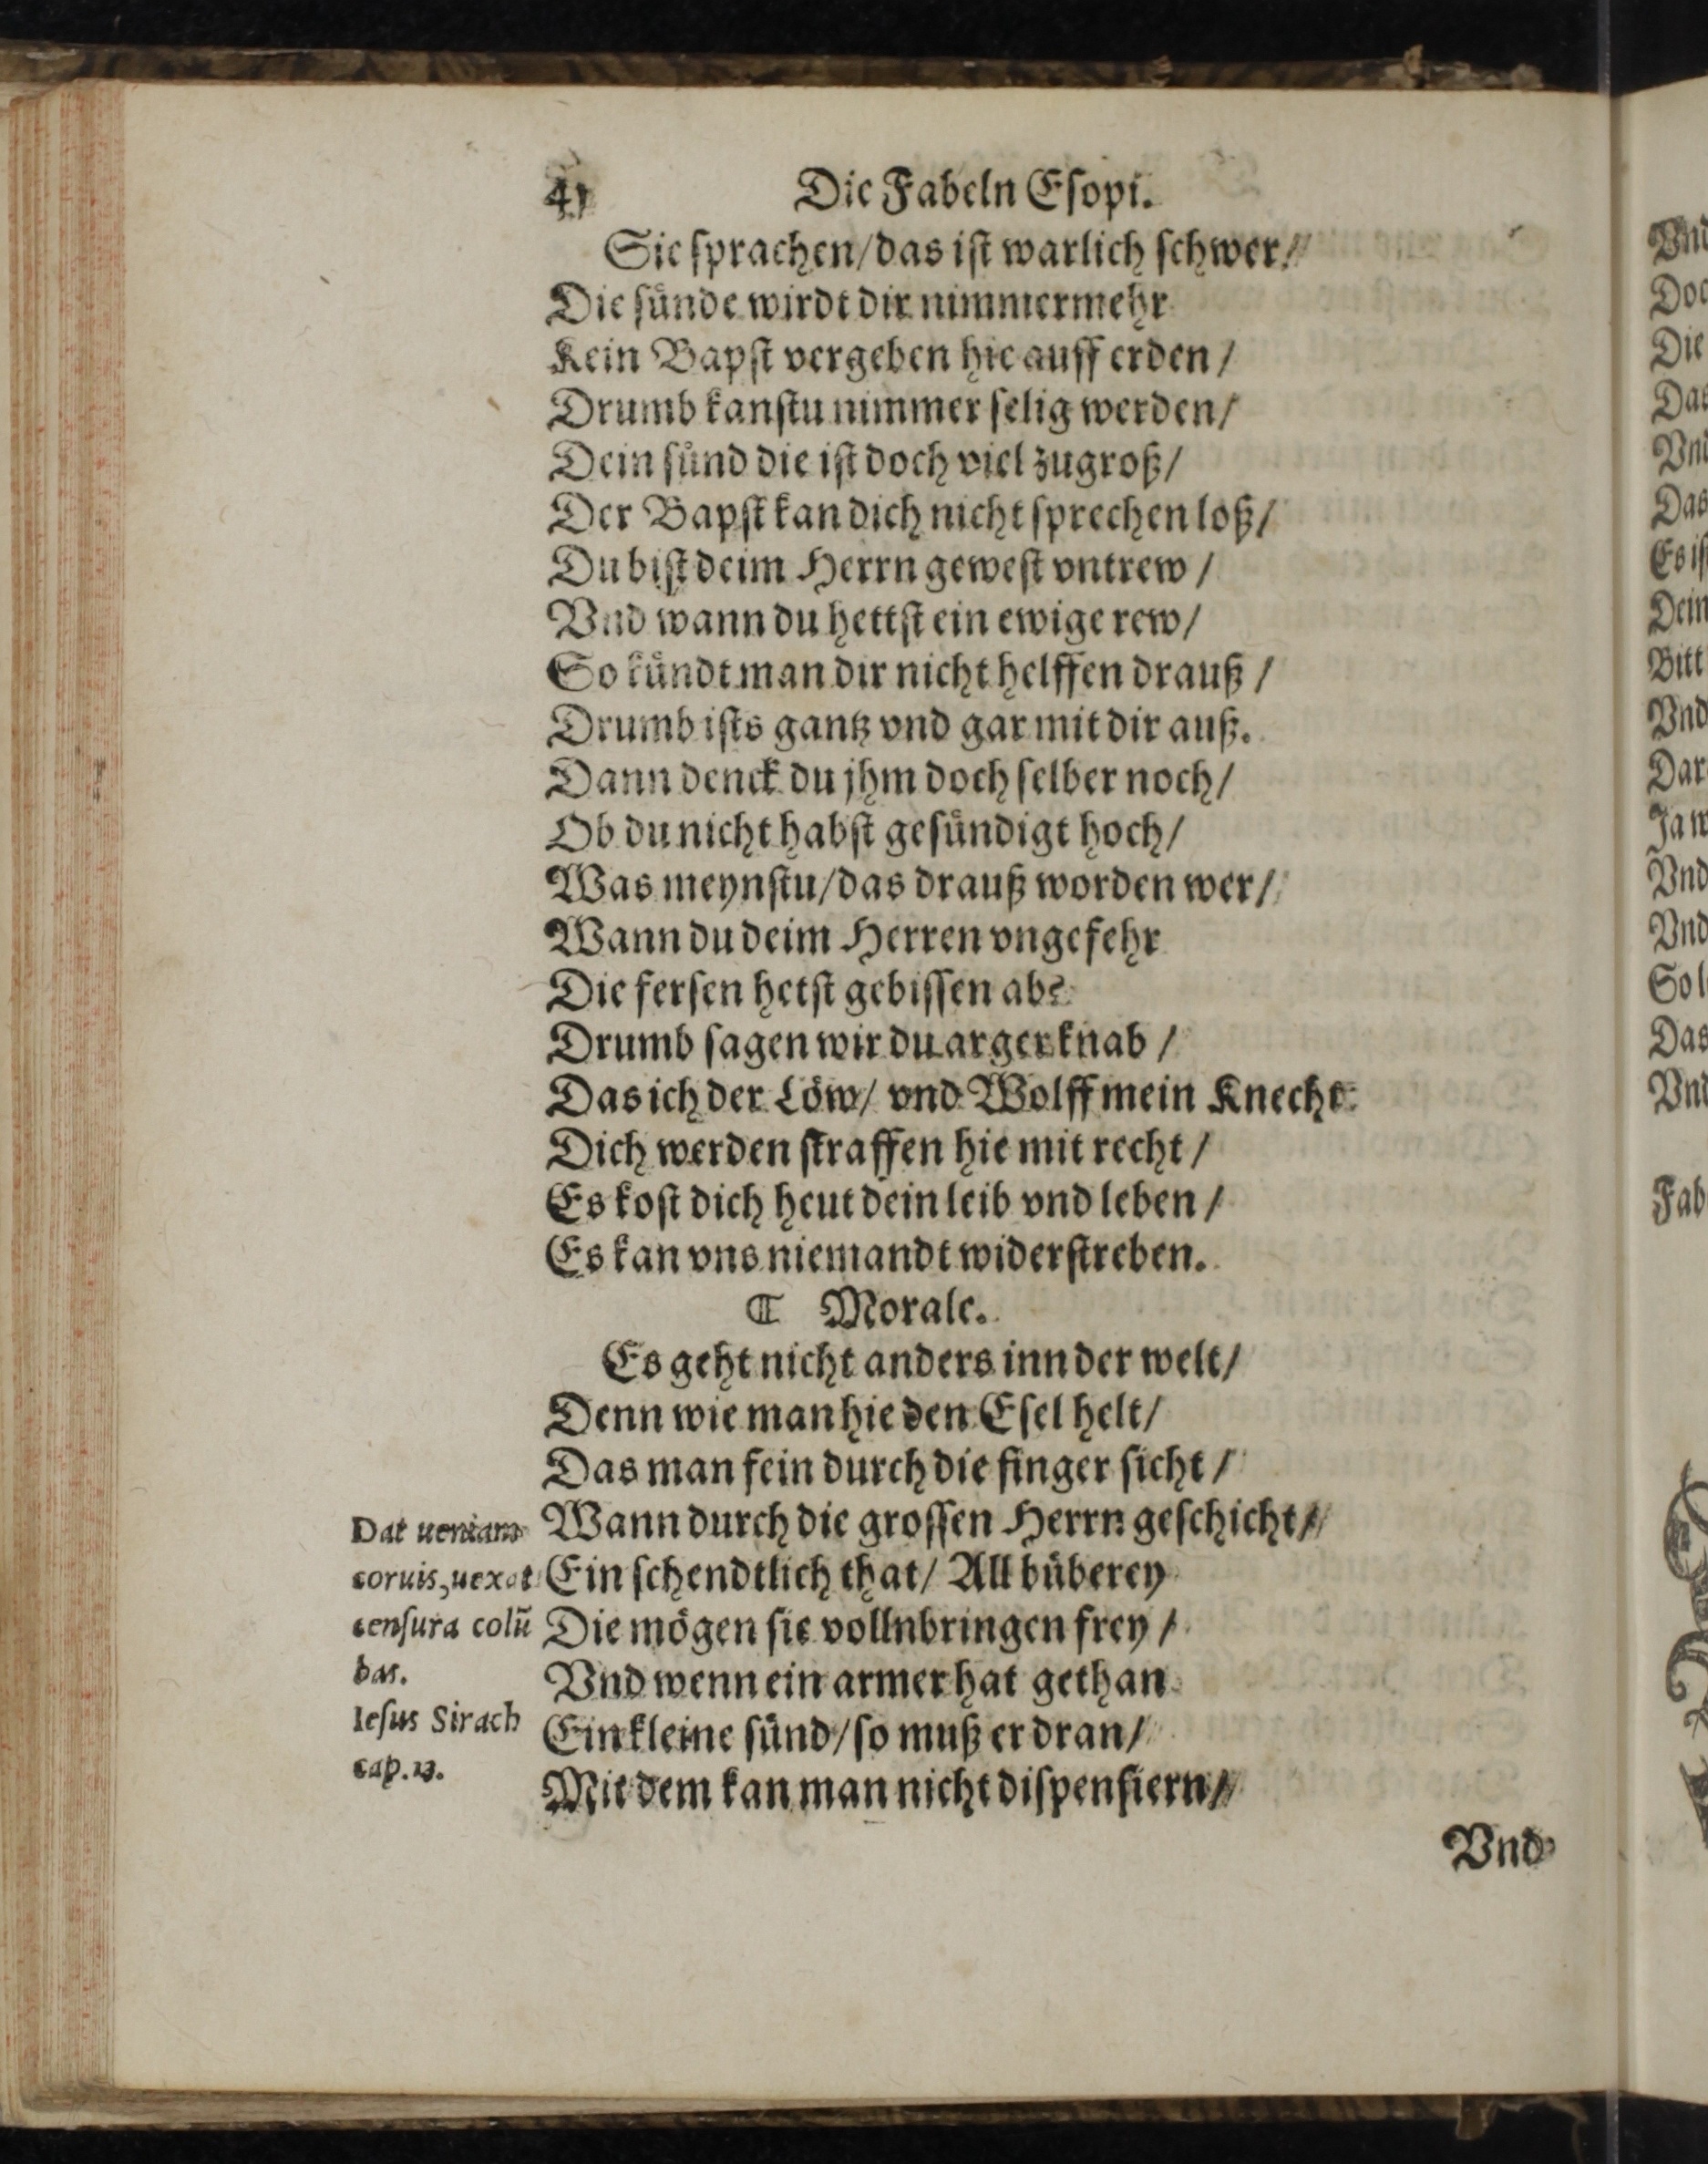 41 Die Fabeln Eſopi.
Sie ſprachen/das iſt warlich ſchwer/
Die ſuͤnde wirdt dir nimmermehr
Kein Bapſt vergeben hie auff erden /
Drumb kanſtu nimmer ſelig werden/
Dein ſuͤnd die iſt doch viel zugroß/
Der Bapſt kan dich nicht ſprechen loß/
Du biſt deim Herrn geweſt vntrew /
Vnd wann du hettſt ein ewige rew/
So kuͤndt man dir nicht helffen drauß /
Drumb iſts gantz vnd gar mit dir auß.
Dann denck du jhm doch ſelber noch/
Ob du nicht habſt geſuͤndigt hoch/
Was meynſtu/das drauß worden wer/
Wann du deim Herren vngefehr
Die ferſen hetſt gebiſſen ab?
Drumb ſagen wir du arger knab /
Das ich der Loͤw/ vnd Wolff mein Knecht
Dich werden ſtraffen hie mit recht /
Es koſt dich heut dein leib vnd leben /
Es kan vns niemandt widerſtreben.
¶ Morale.
Es geht nicht anders inn der welt/
Denn wie man hie den Eſel helt/
Das man fein durch die finger ſicht /
Wann durch die groſſen Herrn geſchicht/
Ein ſchendtlich that/ All buͤberey
Die moͤgen ſie vollnbringen frey /
Vnd wenn ein armer hat gethan
Ein kleine ſuͤnd/ſo muß er dran/
Mit dem kan man nicht diſpenſiern/
Vnd
Dat ueniam
coruis, uexat
cenſura colũ
bas.
Ieſus Sirach
cap. 13.
Vnd
Die
Das
Das
Es iſ
Dein
Bitt
Vnd
Dar
Ja w
Vnd
Vnd
So l
Das
Fab